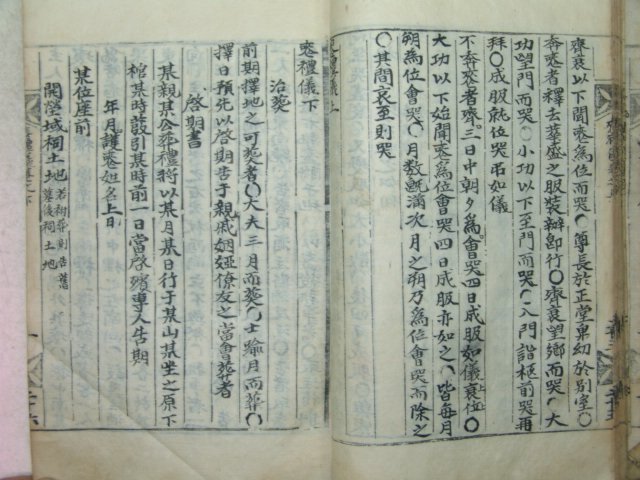 齊衰以下聞䘮爲位而哭○尊長於正堂卑幼於别室○
奔䘮者釋去華盛之服裝辦卽行○齊衰望鄉而哭○大
功望門而哭○小功以下至門而哭○入門詣柩前哭再
拜○成服就位哭吊如儀
不奔䘮者齊三日中朝夕爲會哭四日成服如儀衰位○
大功以下始聞䘮爲位會哭四日成服亦如之○皆每月
朔爲位會哭○月數旣滿次月之朔乃爲位會哭而除之
○其間哀至則哭
䘮禮儀上
䘮禮儀下
治葬
前期擇地之可葬者○大夫三月而葬○士踰月而葬○
擇日預先以啓期告于親戚姻婭僚友之當會葬者
啓期書
某親某公葬禮將以某月某日行于某山某坐之原下
棺某時發引某時前一日當啓殯專人告期
年月護䘮姓名上日
某位座前
開塋域祠土地 若祔葬則告舊
墓後祠土地